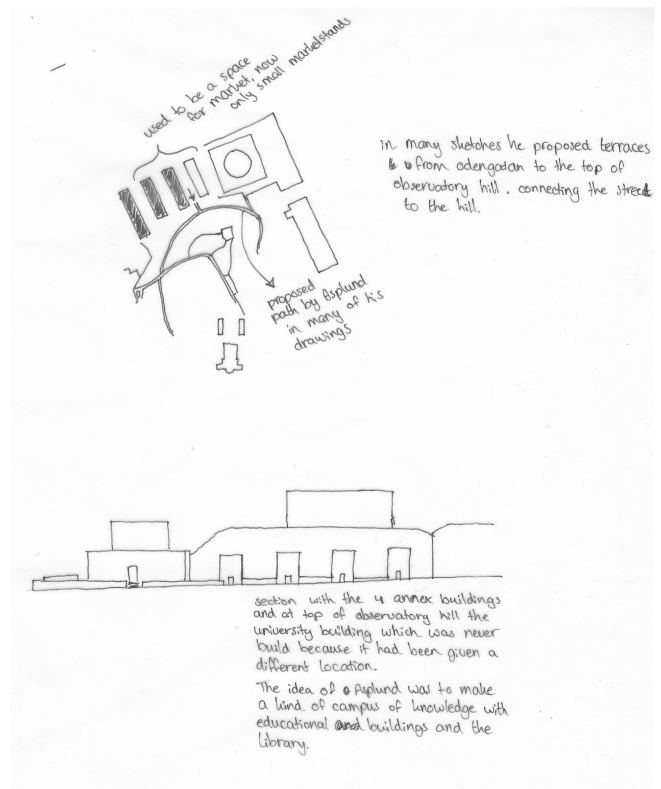 used to be a space
for market, now
only small marketstands
in many sketches he proposed terraces
from odengatan to the top of
observatory hill. connecting the street
to the hill.
proposed
path by Asplund
in many of his
drawings
section with the 4 annex buildings
and at top of observatory hill the
university building which was never
build because it had been given a
different location.
The idea of Asplund was to make
a kind of campus of knowledge with
educational buildings and the
library.